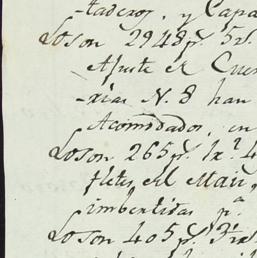 -taderos, y Capa
Loson 2948 p.s 5 r.s
Ajuste el Cue
-rias N. 8 han
Acomodados, en
Loson 265 p.s 1 r.s 4
fletes, el Mau
imbertidas p.a
Loson 405 p.s 3 r.s